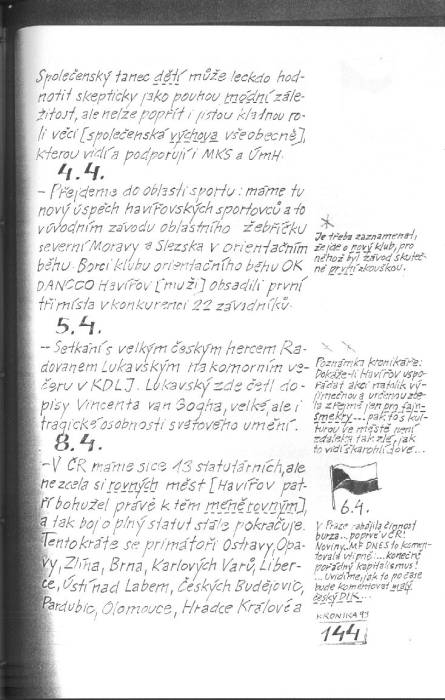 Společenský tanec dětí může leckdo hod-
notit skepticky jako pouhou módní zále-
žitost, ale nelze popřít jistou kladnou ro-
li věci [společenská výchova všeobecně],
kterou vidí a podporují i MKS a ÚmH.
4.4.
- Přejdeme do oblasti sportu: máme tu
nový úspěch havířovských sportovců a to
v úvodním závodu oblastního žebříčku
severní Moravy a Slezska v orientačním
běhu. Borci klubu orientačního běhu OK
DANCCO Havířov [muži] obsadili první
tři místa v konkurenci 22 závodníků.
5.4.
- Setkání s velkým českým hercem Ra-
dovanem Lukavským na komorním ve-
čeru v KDLJ. Lukavský zde četl do-
pisy Vincenta van Gogha, velké, ale i
tragické osobnosti světového umění.
8.4.
- V ČR máme sice 13 statutárních, ale
ne zcela si rovných měst [Havířov pat-
ří bohužel právě k těm méně rovným],
a tak boj o plný statut stále pokračuje.
Tentokráte se primátoři Ostravy, Opa-
vy, Zlína, Brna, Karlových Varů, Liber-
ce, Ústí nad Labem, Českých Budějovic,
Pardubic, Olomouce, Hradce Králové a
Je třeba zaznamenat,
že jde o nový klub, pro
něhož byl závod skuteč-
ně první zkouškou.
Poznámka kronikáře:
Dokáže-li Havířov uspo-
řádat akci natolik vý-
jimečnou a určenou zce-
la zřejmě jen pro fajn-
šmekry... pak to s kul-
turou ve městě není
zdaleka tak zlé, jak
to vidí škarohlídové...
6.4.
V Praze zahájila činnost
burza... poprvé v ČR!
Noviny MF DNES to komen-
tovaly vtipně:...konečně
pořádný kapitalismus!
...Uvidíme, jak to po čase
bude komentovat malý
český DIK...
KRONIKA 93
144